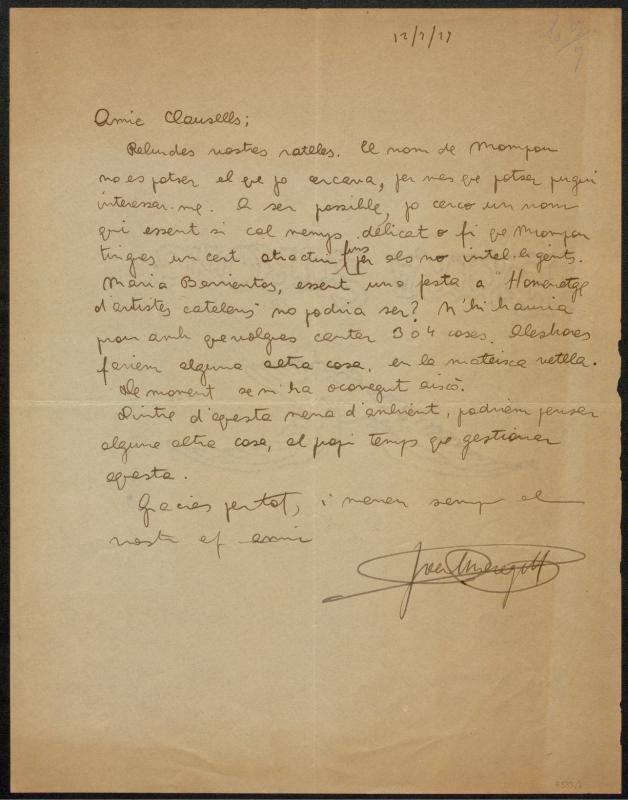 12/7/27
Amic Clausells;
Rebudes vostres ratlles. El nom de Mompou
no es potser el que jo cercava, per mes que potser pugui
interessar-me. A ser possible, jo cerco un nom
qui essent si cal menys delicat o fi que Mompou
tingues un cert atractiu fins per als no intel·ligents.
Maria Barrientos, essent una festa a "Homenatge
d'artistes catalans" no podria ser? N'hi hauria
prou amb que volgues cantar 3 o 4 coses. Aleshores
fariem alguna altra cosa, en la mateixa vetlla.
De moment se m'ha ocorregut aixó.
Dintre d'aquesta mena d'ambient, podriem pensar
alguna altra cosa, al propi temps que gestionar
aquesta.
Gracies per tot, i maneu sempre al
vostre af amic
Joan